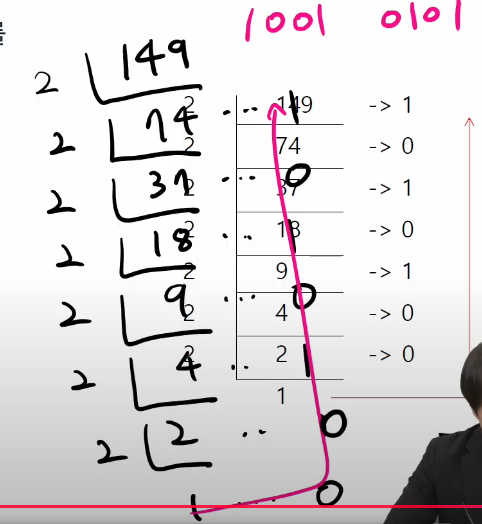 를
1001 0101
2 149
2 74 ... 1
2 37 ... 0
2 18 ... 1
2 9 ... 0
2 4 .. 1
2 2 .. 0
1 .... 0
2 149 -> 1
2 74 -> 0
2 37 -> 1
2 18 -> 0
2 9 -> 1
2 4 -> 0
2 2 -> 0
1